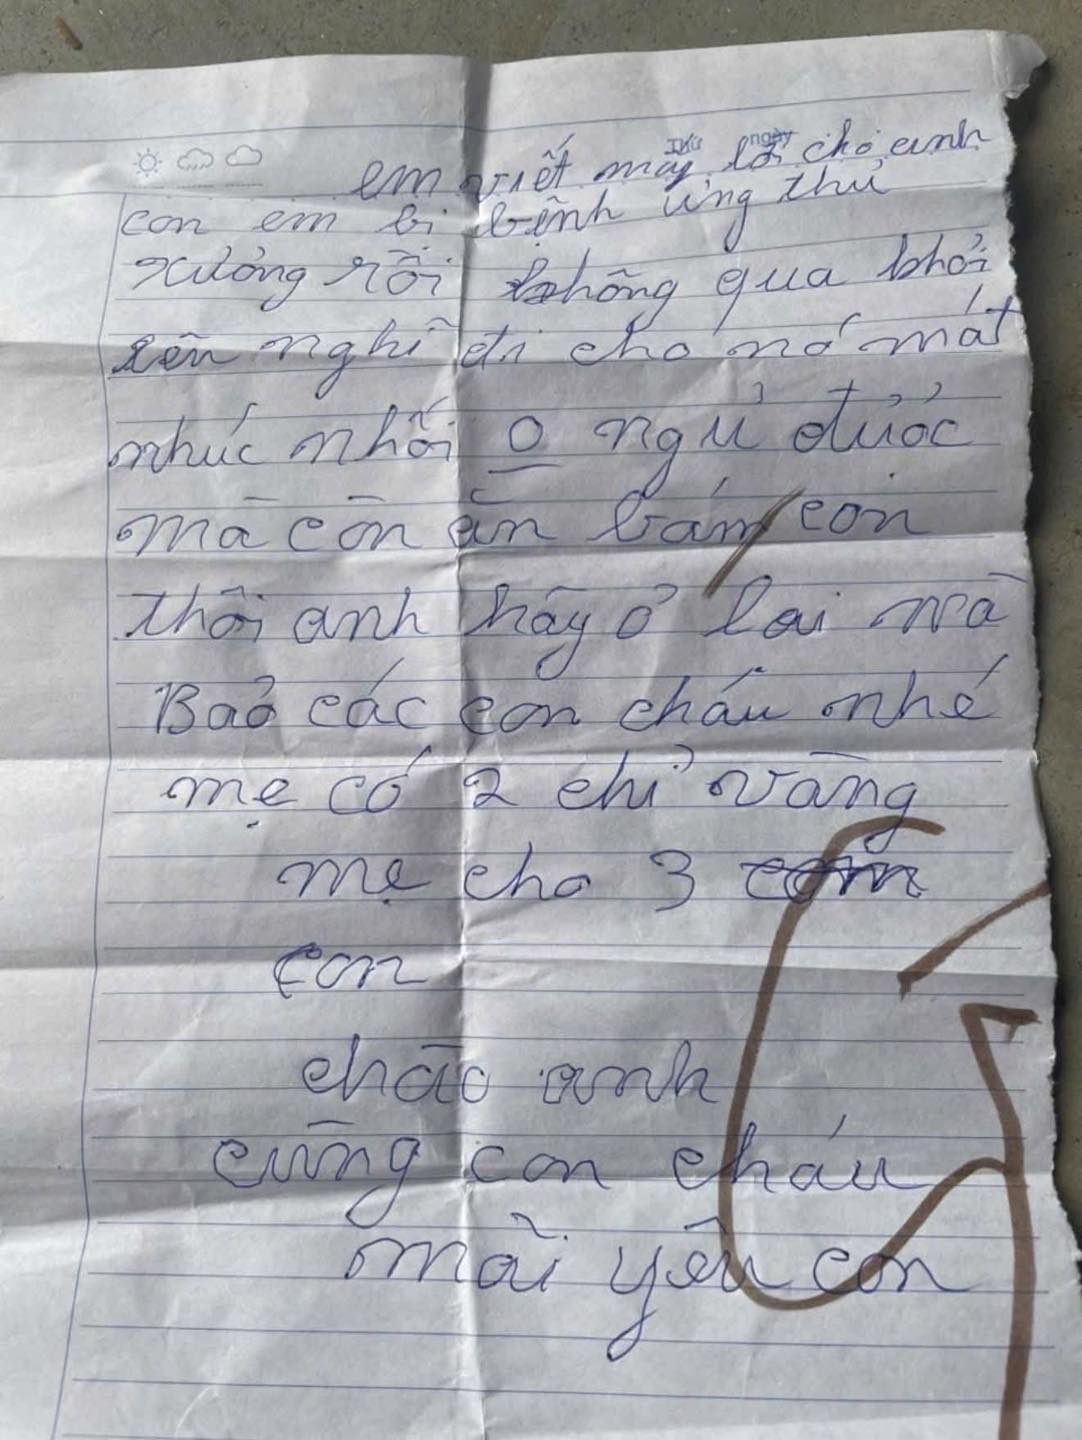 Thứ ngày
em viết mấy lời cho anh
con em bị bệnh ưng thử
xưởng rồi không qua khỏi
lên nghĩ đi cho nó mát
nhức nhối O ngủ được
mà còn ăn bám con
thôi anh hãy ở lai và
Bảo các con cháu nhé
mẹ có 2 chỉ vàng
mẹ cho 3
con
chào anh
cùng con cháu
mãi yêu con